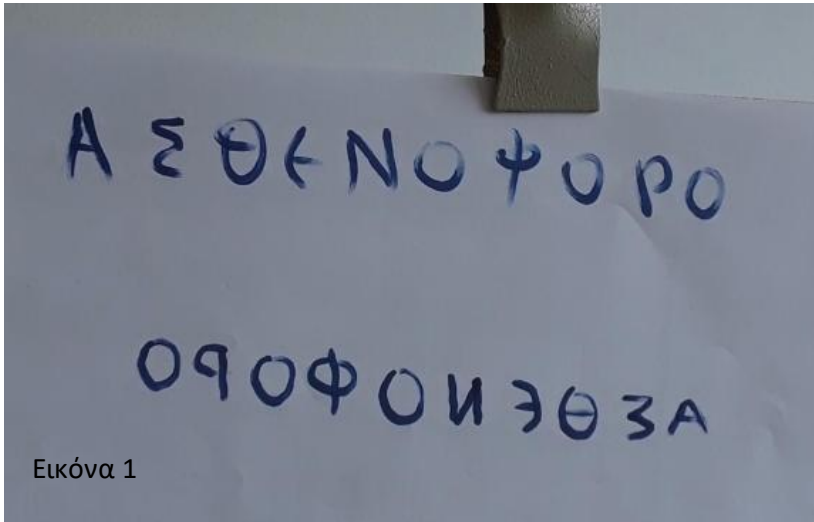 ΑΣΘΕΝΟΦΟΡΟ
ΟꟼΟΦΟИЭΘ3Α
Εικόνα 1